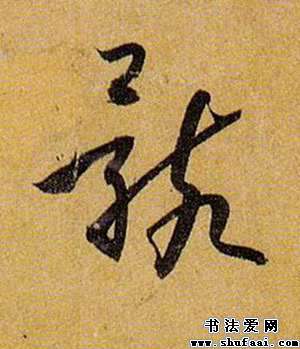 骸
书法爱网
www.shufaai.com